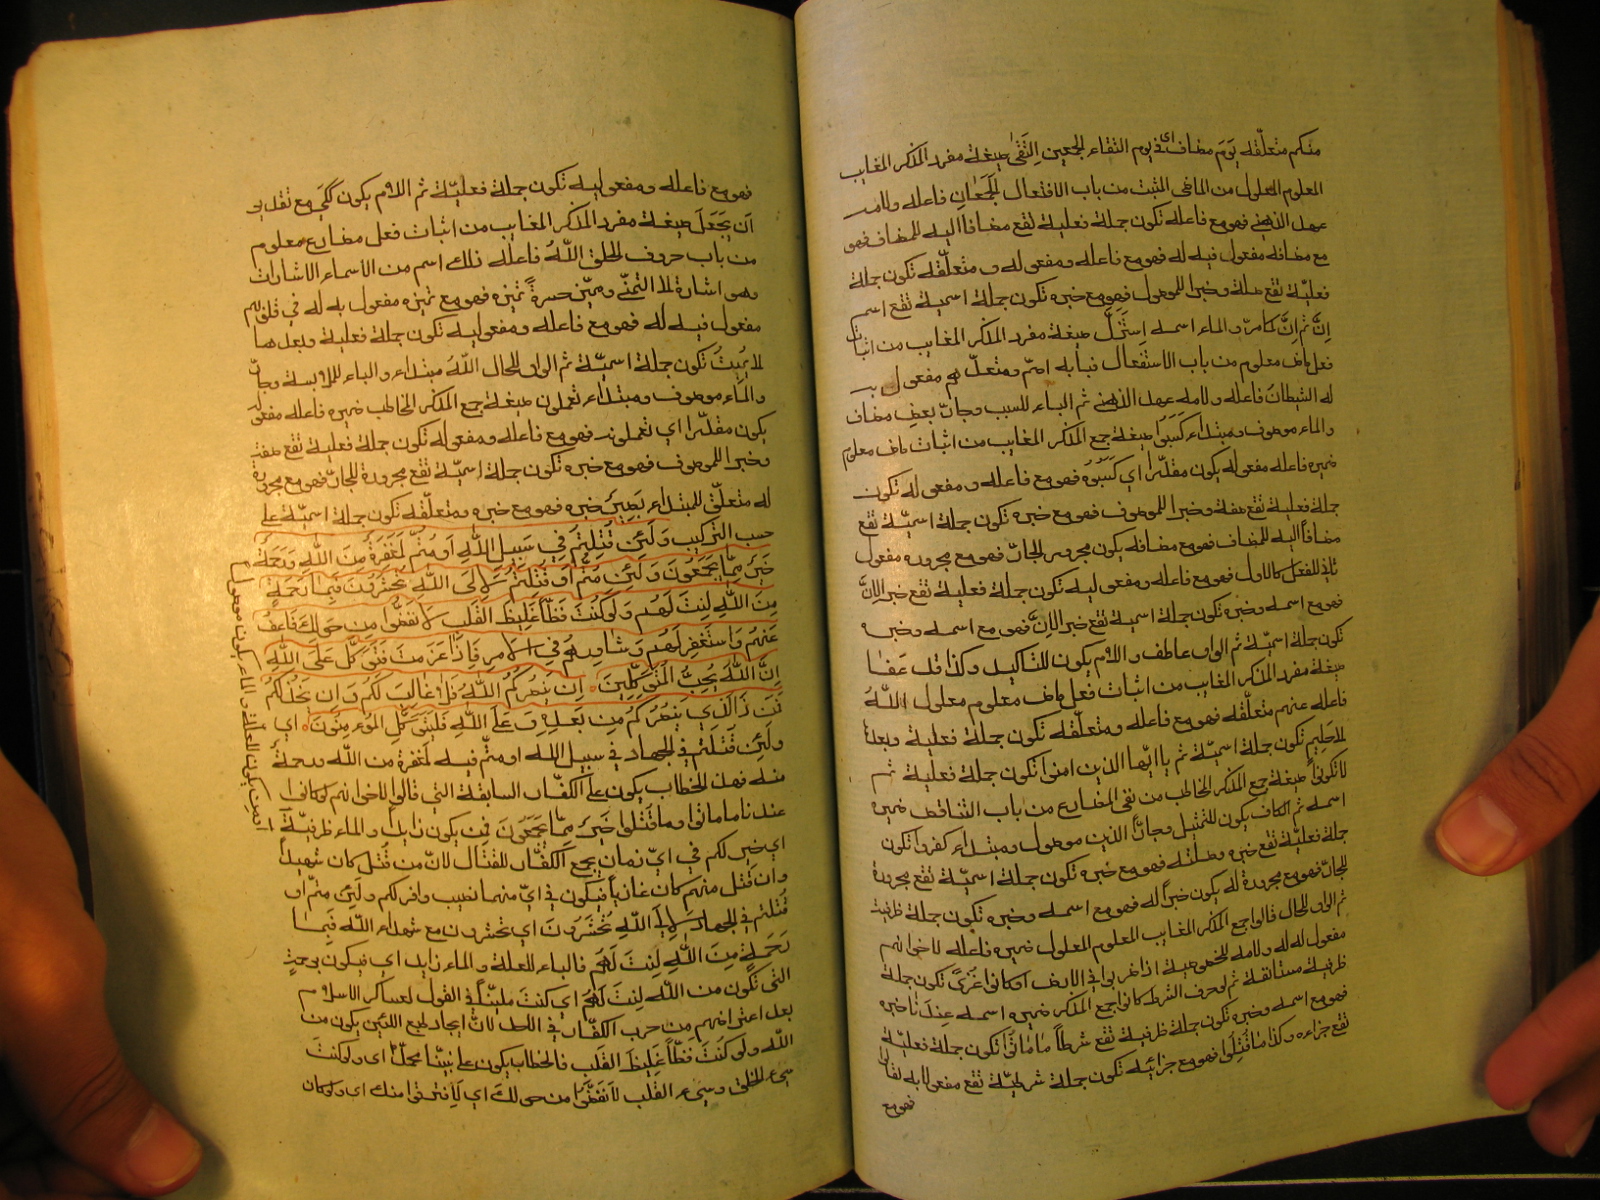 منكم متعلّقه يَوْمَ مضاف اي في يوم التقاء الجمعين اِلتَقَىٰ صيغة مفرد المذكر المغايب
المعلوم المعلول من الماضي المثبت من باب الافتعال الْجَمْعَانِ فاعله ولامه
عهد الذهني فهو مع فاعله تكون جملة فعلية تقع مضافاً اليه للمضاف فهو
مع مضافه مفعول فيه له فهو مع فاعله ومفعوله ومتعلّقه تكون جملة
فعليّة تقع صلة وخبرا للموصول فهو مع خبره تكون جملة اسمية تقع اسم
اِنَّ ثم اِنَّ كامرّ والماء اسمه اِسْتَزَلَّ صيغة مفرد المذكر المغايب من اثبات
فعل ماض معلوم من باب الاستفعال فبابه اصمّ ومتعلّ هم مفعول به
له الشيطان فاعله ولامه عهد الذهني ثم الباء للسبب وجارّ بعض مضاف
والماء موصوف ومبتداء كَسَبُوا صيغة جمع المذكر المغايب من اثبات ماض معلوم
ضميره فاعله مفعوله يكون مقدّرا اي كَسَبُوه فهو مع فاعله ومفعوله تكون
جملة فعلية تقع صفة وخبرا للموصوف فهو مع خبره تكون جملة اسميّة تقع
مضافاً اليه للمضاف فهو مع مضافه يكون مجرور الجارّ فهو مع مجروره مفعول
ثاني للفعل كالاول فهو مع فاعله ومفعوليه تكون جملة فعلية تقع خبر الاِنَّ
فهو مع اسمه وخبره تكون جملة اسمية تقع خبر الاِنَّ فهو مع اسمه وخبره
تكون جملة اسميّة ثم الواو عاطف واللام يكون للتاكيد وكذا قد عَفَا
صيغة مفرد المذكر المغايب من اثبات فعل ماض معلوم معلول اللّٰهُ
فاعله عنهم متعلّقه فهو مع فاعله ومتعلّقه تكون جملة فعلية وبعدها
لاحَلِيم تكون جملة اسميّة ثم يا ايّها الذين امنوا تكون جملة فعلية ثم
لاتكونوا صيغة جمع المذكر المخاطب من نفي المضارع من باب الناقص ضميره
اسمه ثم الكاف يكون للتمثيل وجارّا الذين موصول ومبتداء كفروا تكون
جملة فعليّة تقع خبره وصلته فهو مع خبره تكون جملة اسميّة تقع مجرورة
للجارّ فهو مع مجرورة له يكون خبراً له فهو مع اسمه وخبره تكون جملة ظرفية
ثم الواو للحال قالوا جمع المذكر المغايب المعلوم المعلول ضميره فاعله لاخوانهم
مفعول له له ولامه للخصوصية اذا ضربوا في الارض او كانوا غُزًّى تكون جملة
ظرفية مستانفة ثم لو حرف الشرط كانوا جمع المذكر ضميره اسمه عِنْدَنَا خبره
فهو مع اسمه وخبره تكون جملة ظرفية تقع شرطاً مَا مَاتُوا تكون جملة فعليّة
تقع جزاءه وكذا مَا قُتِلُوا فهو مع جزائه تكون جملة شرطيّة تقع مفعولا به لقالوا
فهو مع
فهو مع فاعله ومفعوليه تكون جملة فعليّة ثم اللام يكون كَيْ مع تقدير
اَن يَجْعَلَ صيغة مفرد المذكر المغايب من اثبات فعل مضارع معلوم
من باب حروف الحلق اللّٰهُ فاعله ذلك اسم من الاسماء الاشارات
وهو اشارة الى التمنّي ومميّز حسرةً تميزه فهو مع تميزه مفعول به له في قلوبهم
مفعول فيه له فهو مع فاعله ومفعوليه تكون جملة فعلية وبعدها
لا يُمِيتُ تكون جملة اسميّة ثم الواو للحال اللّٰهُ مبتداء والباء للملابسة وجارّ
والماء موصوف ومبتداء تعملون صيغة جمع المذكر المخاطب ضميره فاعله مفعوله
يكون مقدّرا اي تعملونه فهو مع فاعله ومفعوله تكون جملة فعلية تقع صفة
وخبرا للموصوف فهو مع خبره تكون جملة اسميّة تقع مجرورة للجارّ فهو مع مجرورة
له متعلّق للمبتداء بَصِيرٌ خبره فهو مع خبره ومتعلّقه تكون جملة اسميّة على
حسب التركيب وَلَئِنْ قُتِلْتُمْ فِي سَبِيلِ اللّٰهِ اَوْ مُتُّمْ لَمَغْفِرَةٌ مِنَ اللّٰهِ وَرَحْمَةٌ
خَيْرٌ مِمَّا يَجْمَعُونَ وَلَئِنْ مُتُّمْ اَوْ قُتِلْتُمْ لَاِلَى اللّٰهِ تُحْشَرُونَ فَبِمَا رَحْمَةٍ
مِنَ اللّٰهِ لِنْتَ لَهُمْ وَلَوْ كُنْتَ فَظّاً غَلِيظَ الْقَلْبِ لَانْفَضُّوا مِنْ حَوْلِكَ فَاعْفُ
عَنْهُمْ وَاسْتَغْفِرْ لَهُمْ وَشَاوِرْهُمْ فِي الْاَمْرِ فَاِذَا عَزَمْتَ فَتَوَكَّلْ عَلَى اللّٰهِ
اِنَّ اللّٰهَ يُحِبُّ الْمُتَوَكِّلِينَ اِنْ يَنْصُرْكُمُ اللّٰهُ فَلَا غَالِبَ لَكُمْ وَاِنْ يَخْذُلْكُمْ
فَمَنْ ذَا الَّذِي يَنْصُرُكُمْ مِنْ بَعْدِهِ وَعَلَى اللّٰهِ فَلْيَتَوَكَّلِ الْمُؤْمِنُونَ اي
ولَئِن قُتِلْتُمْ في الجهاد في سبيل الله او متّم فيه لَمَغْفِرَةٌ من اللّٰه ورحمةٌ
منه فهذا الخطاب يكون على الكفّار السابقة التي قالوا لاخوانهم لو كانوا
عندنا ما ماتوا وما قتلوا خَيْرٌ مِمَّا يَجْمَعُونَ فمِن يكون زايد والماء ظرفيّة
اي خير لكم في ايّ زمان يجمع الكفّار للقتال لانّ من قُتل كان شهيداً
وان قتل منهم كان غازياً فيكون في ايّ منهما نصيب وافر لكم ولَئِن متّم او
قُتلتم في الجهاد لَاِلَى اللّٰهِ تُحْشَرُونَ اي تحشرون مع شهداء اللّٰه فَبِمَا
رَحْمَةٍ مِنَ اللّٰهِ لِنْتَ لَهُمْ فالباء للعلة والماء زايد اي فيكون برحمةٍ
التي تكون من اللّٰه لِنْتَ لَهُمْ اي كنت مليّناً في القول لعساكر الاسلام
بعد اعتراضهم من حرب الكفّار في اللحد لانّ ايجاد لجمع اللّين يكون من
اللّٰه ولو كُنْتَ فَظّاً غَلِيظَ القَلب فالخطاب يكون على نبيّنا محمّد اي ولو كنت
سيّء الخلق وسيّء القلب لَانْفَضُّوا من حولك اي لافترقوا منك اي ولو كان